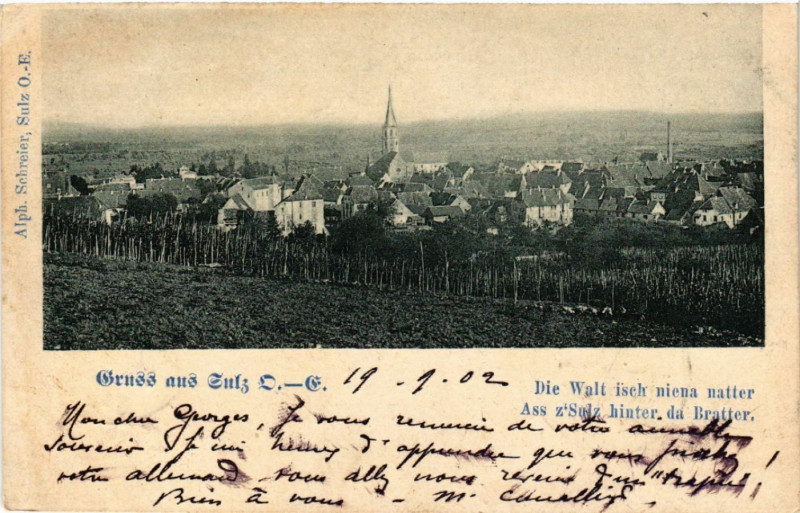 Alph. Schreier, Sulz O.-E.
Gruss aus Sulz O.—E. 19 - 9 - 02
Die Walt isch niena natter
Ass z'Sulz hinter da Bratter.
Mon cher Georges, Je vous remercie de votre
souvenir Je suis heureux d'apprendre que vous
votre allemand vous allez nous revenir
Bien à vous - M.